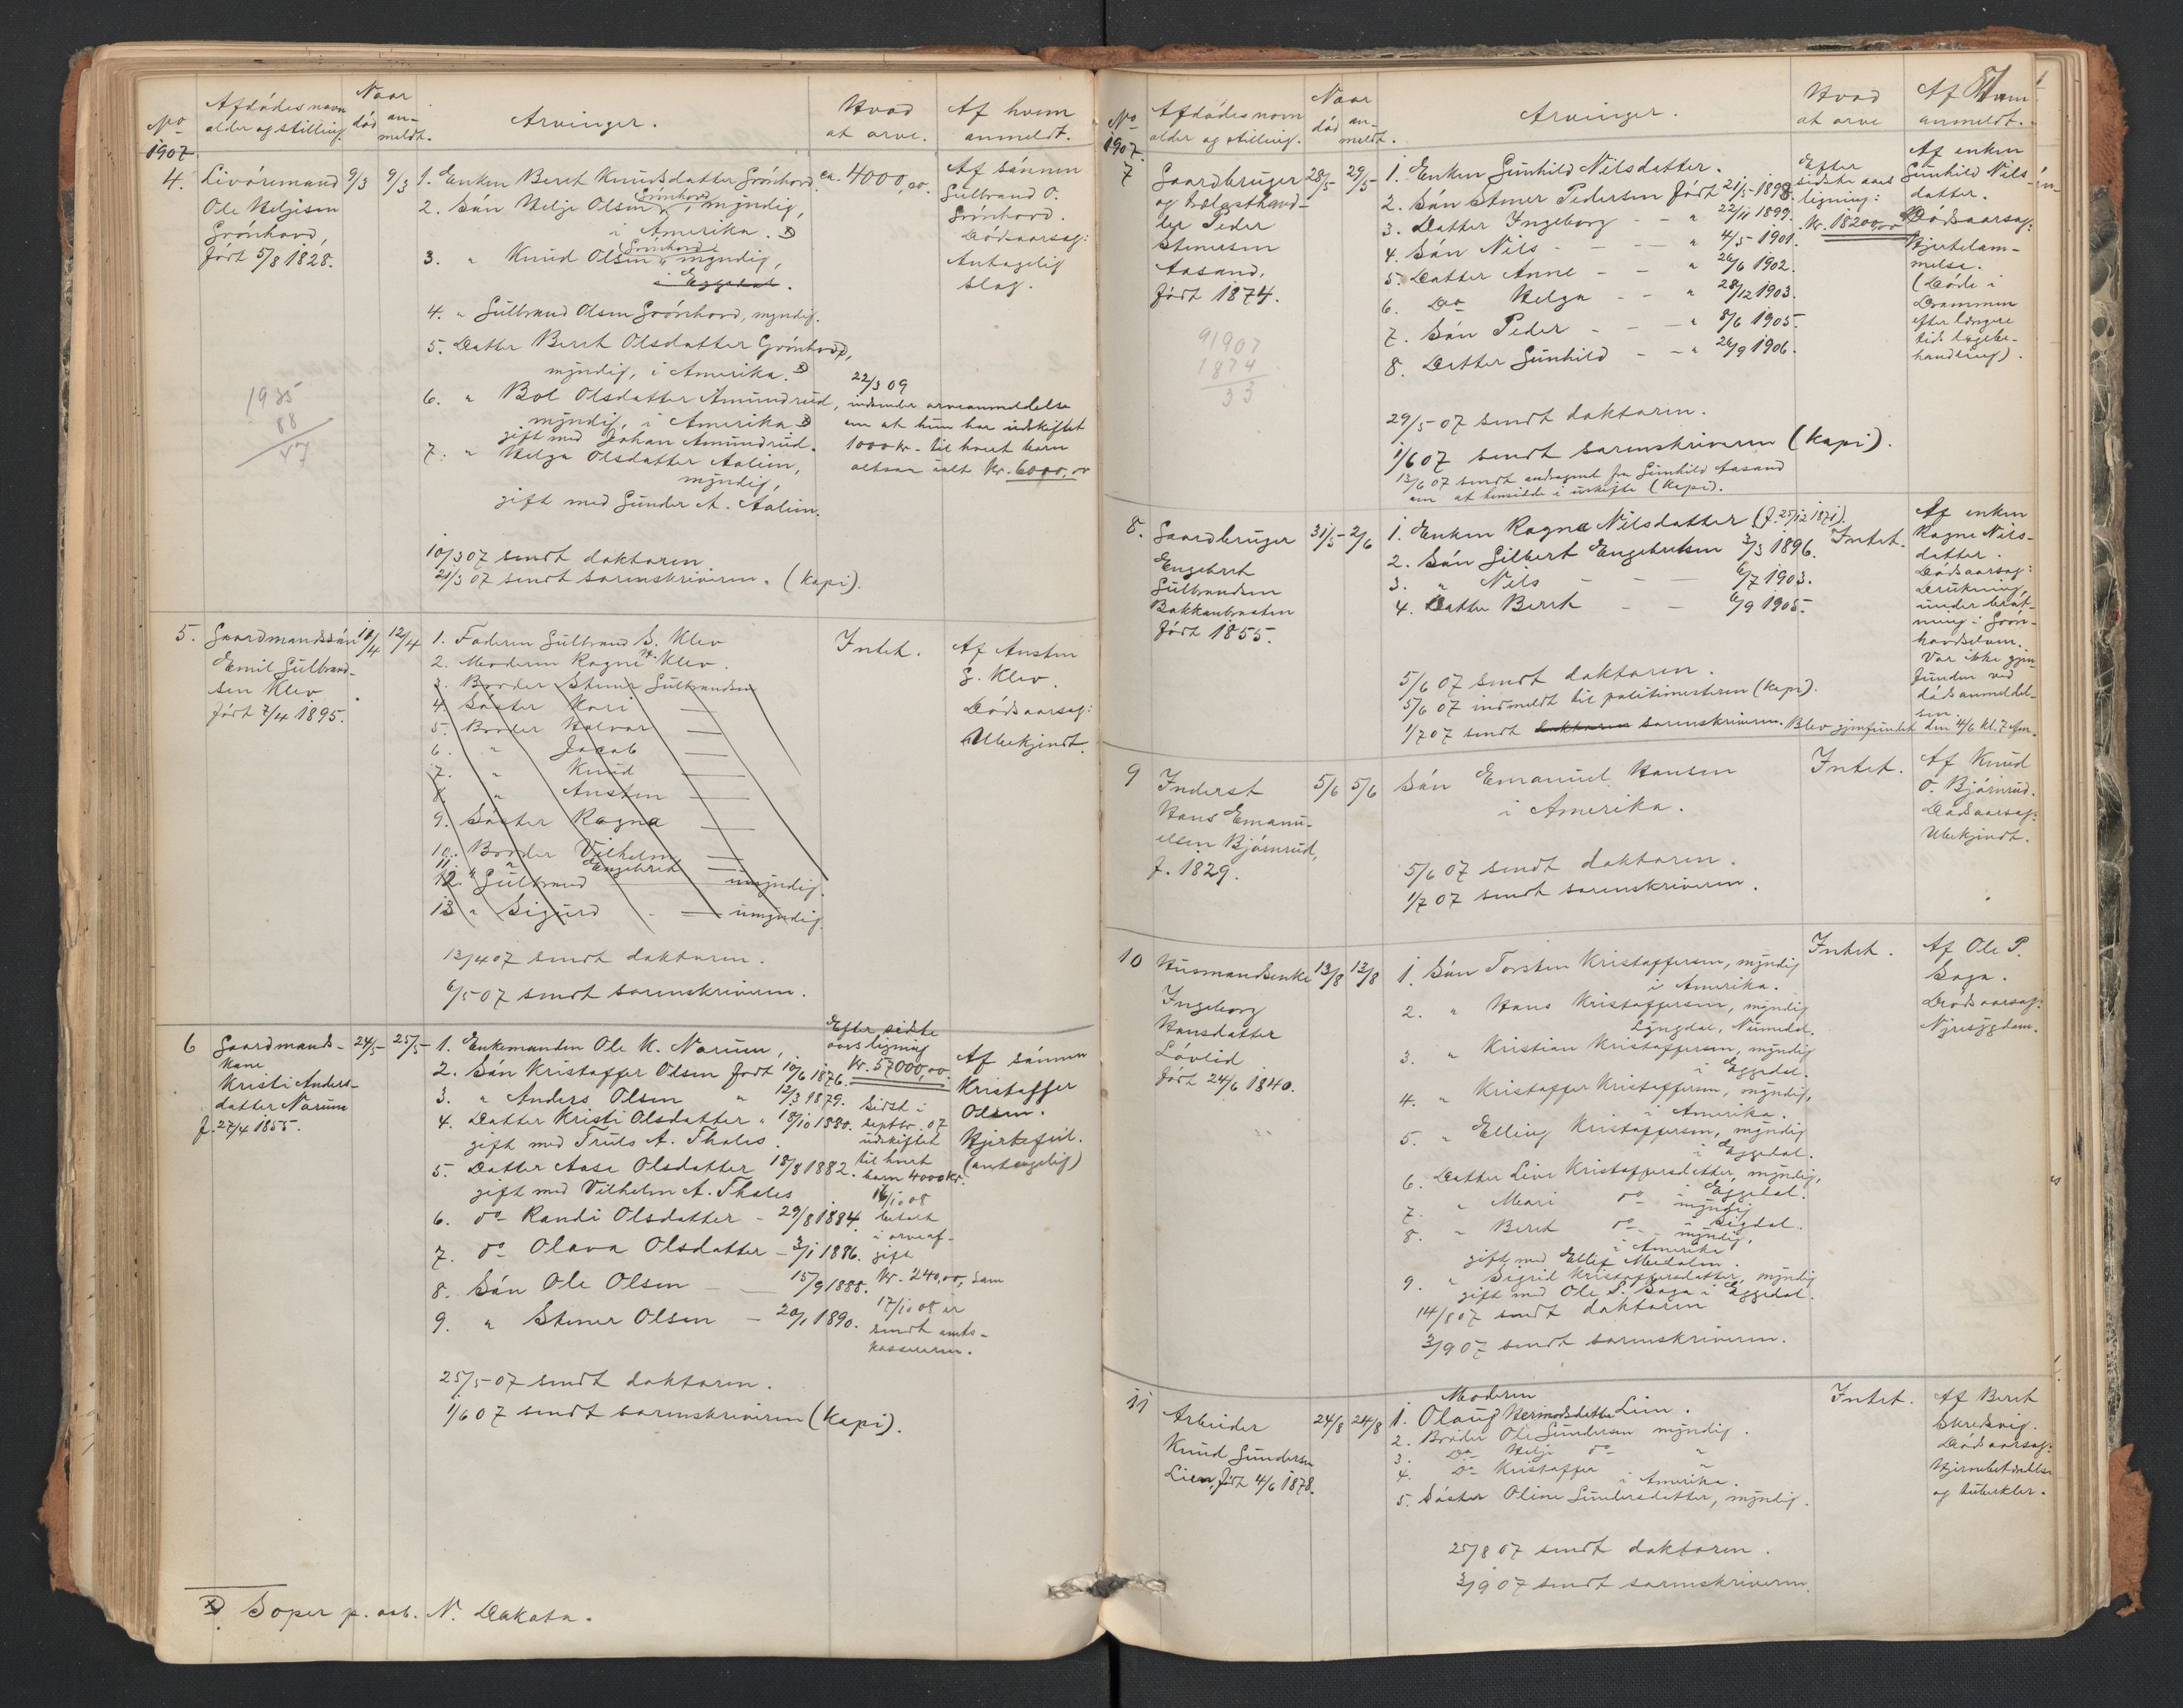 No
1907
Afdødes navn
alder og stilling.
Naar
død
an-
meldt.
Arvinger.
Hvad
at arve.
Af hvem
anmeldt.
4.
Livøremand
Ole Helgesen
Grønhovd,
født 5/8 1828.
9/3
9/3
1. Enken Beret Knudsdatter Grønhovd.
2. Søn Helge Olsen Grønhovd, myndig,
i Amerika.
3. " Knud Olsen Grønhovd, myndig,
i Eggedal.
4. " Gulbrand Olsen Grønhovd, myndig.
5. Datter Berit Olsdatter Grønhovd,
myndig, i Amerika.
6. " Bol Olsdatter Amundrud,
myndig, i Amerika
gift med Johan Amundrud.
7. " Helga Olsdatter Aalien,
myndig,
gift med Gunder A. Aalien.
ca. 4000,00.
22/3 09
indsender arveanmeldelse
om at hun har udskiftet
1000 kr. til hvert barn
altsaa ialt Kr. 6000,00
Af sønnen
Gulbrand O.
Grønhovd.
Dødsaarsag:
Antagelig
slag.
1935
88
47
10/3 07 sendt doktoren.
21/3 07 sendt sorenskriveren. (Kopi).
5.
Gaardmandssøn
Emil Gulbrand-
sen Klev
født 7/4 1895.
11/4
12/4
1. Faderen Gulbrand S. Klev
2. Moderen Ragne H. Klev.
3. Broder Stener Gulbrandsen
4. Søster Kari —
5. Broder Halvor —
6. " Jacob —
7. " Knud —
8. " Austen —
9. Søster Ragna —
10. Broder Vilhelm —
11. " Engebret —
12. " Gulbrand — umyndig.
13 " Sigurd — umyndig.
Intet.
Af Austen
G. Klev.
Dødsaarsag:
Ubekjendt.
13/4 07 sendt doktoren.
6/5 07 sendt sorenskriveren.
6
Gaardmands-
kone
Kristi Anders-
datter Narum
f. 27/4 1855.
24/5
25/5
1. Enkemanden Ole K. Narum,
2. Søn Kristoffer Olsen født 10/6 1876.
3. " Anders Olsen " 12/3 1879.
4. Datter Kristi Olsdatter " 18/10 1880.
gift med Truls A. Thales.
5. Datter Aase Olsdatter 18/8 1882.
gift med Vilhelm A. Thales
6. do Randi Olsdatter - 29/8 1884.
7. do Olava Olsdatter - 3/1 1886.
8. Søn Ole Olsen — 15/9 1888.
9. " Stener Olsen — 20/1 1890.
Efter sidste
aars ligning
Kr. 57000,00.
sidst i
septbr. 07
udskiftet
til hvert
barn 4000 Kr.
16/10 08
betalt
i arveaf-
gift
Kr. 240,00, som
17/10 08 er
sendt amts-
kassereren.
Af sønnen
Kristoffer
Olsen.
Hjertefeil.
(antagelig)
25/5 07 sendt doktoren.
1/6 07 sendt sorenskriveren (Kopi).
Soper p. ook. N. Dakota.
No
1907.
Afdødes navn
alder og stilling.
Naar
død
an-
meldt.
Arvinger.
Hvad
at arve
Af hvem
anmeldt.
7
Gaardbruger
og Bolasthand-
ler Peder
Stenersen
Aasand,
født 1874.
28/5
29/5
1. Enken Gunhild Nilsdatter.
2. Søn Stener Pedersen født 21/5 1898.
3. Datter Ingeborg - - " 22/11 1899.
4. Søn Nils - - — " 4/5 1901.
5. Datter Anne - - " 26/6 1902.
6. Do Helga - - " 28/12 1903.
7. Søn Peder - - — " 8/6 1905.
8. Datter Gunhild - - " 26/9 1906.
Efter
sidste aars
ligning:
Kr. 18200,00
Af enken
Gunhild Nils-
datter.
Dødsaarsag:
Hjertelam-
melse.
(Døde i
Drammen
efter længere
tids lægebe-
handling).
91907
1874
33
29/5 07 sendt doktoren.
1/6 07 sendt sorenskriveren (Kopi).
13/6 07 sendt andragend fra Gunhild Aasand
om at hensidde i uskifte (Kopi).
8.
Gaardbruger
Engebret
Gulbrandsen
Bakkenbraaten
født 1855.
31/5
2/6
1. Enken Ragne Nilsdatter (f. 25/12 1871).
2. Søn Gilbert Engebretsen 3/3 1896.
3. " Nils - — 6/7 1903.
4. Datter Beret - — 6/9 1905.
Intet.
Af enken
Ragne Nils-
datter.
Dødsaarsag:
Drukning,
under bløt-
ning i Grøn-
hovdselven.
Var ikke gjen-
funden ved
dødsanmeldel-
sen.
5/6 07 sendt doktoren.
5/6 07 indmeldt til politimesteren (kopi).
1/7 07 sendt doktoren sorenskriveren. Blev gjenfundet den 4/6 kl. 7 efm.
9
Inderst
Hans Emanu-
elsen Bjørnrud,
f. 1829.
5/6
5/6
Søn Emanuel Hansen
i Amerika.
Intet.
Af Knud
O. Bjørnrud.
Dødsaarsag:
Ubekjendt.
5/6 07 sendt doktoren.
1/7 07 sendt sorenskriveren.
10
Husmandsenke
Ingeborg
Hansdatter
Løvlid
født 24/6 1840.
13/8
13/8
1. Søn Torsten Kristoffersen, myndig
i Amerika.
2. " Hans Kristoffersen, myndig
Lyngdal, Numedal.
3. " Kristian Kristoffersen, myndig
i Eggedal.
4. " Kristoffer Kristoffersen, myndig,
i Amerika.
5. " Elling Kristoffersen, myndig
i Eggedal.
6. Datter Live Kristoffersdatter, myndig,
i Eggedal.
7. " Mari do myndig
i Sigdal.
8. " Beret do myndig,
i Amerika
gift med Ellef Medalen.
9. " Sigrid Kristoffersdatter, myndig
gift med Ole P. Saga i Eggedal.
Intet.
Af Ole P.
Saga.
Dødsaarsag:
Nyresygdom.
14/8 07 sendt doktoren
3/9 07 sendt sorenskriveren.
11
Arbeider
Knud Gundersen
Lien, født 4/6 1878.
24/8
24/8
Moderen
1. Olaug Hermodsdatter Lien.
2. Broder Ole Gundersen myndig.
3. Do Helge do "
4. Do Kristoffer "
i Amerika.
5. Søster Oline Gundersdatter, myndig.
Intet.
Af Beret
Skredsvig.
Dødsaarsag:
Hjernebetændelse
og tuberkler.
25/8 07 sendt doktoren.
3/9 07 sendt sorenskriveren.